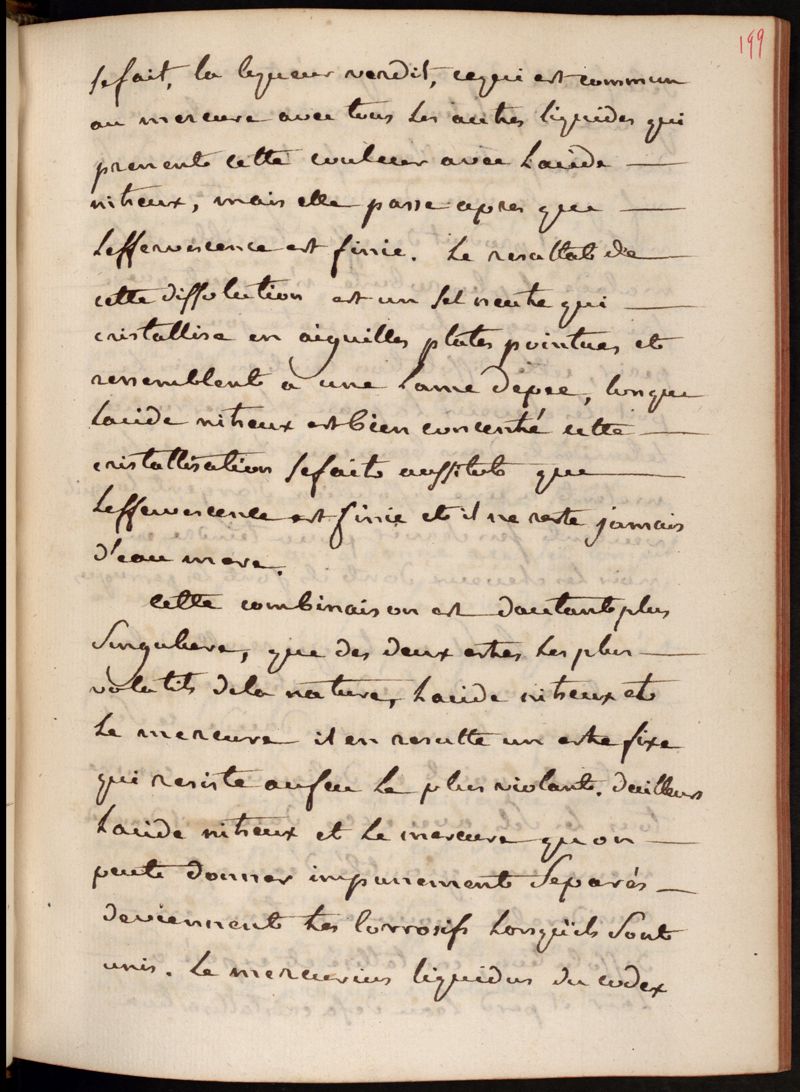 199
se fait, la liqueur verdit, ce qui est commun
au mercure avec tous les autres liquides qui
prenent cette couleur avec Lacide —
nitreux, mais elle passe apres que —
Leffervescence est finie. Le resultat de —
cette dissolution est un Sel neutre qui —
cristallise en aiguilles plates pointues et
ressemblent a une Lame d'epee, lorsque
Lacide nitreux est bien concentré cette —
cristallisation se fait aussitot que —
Leffervescence est finie et il ne reste jamais
d'eau mere.
Cette combinaison est dautant plus
Singuliere, que des deux estres les plus —
volatils de la nature, Lacide nitreux et
Le mercure il en resulte un estre fixe
qui resiste au feu le plus violant. Dailleurs
Lacide nitreux et Le mercure qu on —
peut donner impunement Separés —
deviennent tres Corrosifs Lorsquils Sont
unis. Le mercurius liquidus du codex